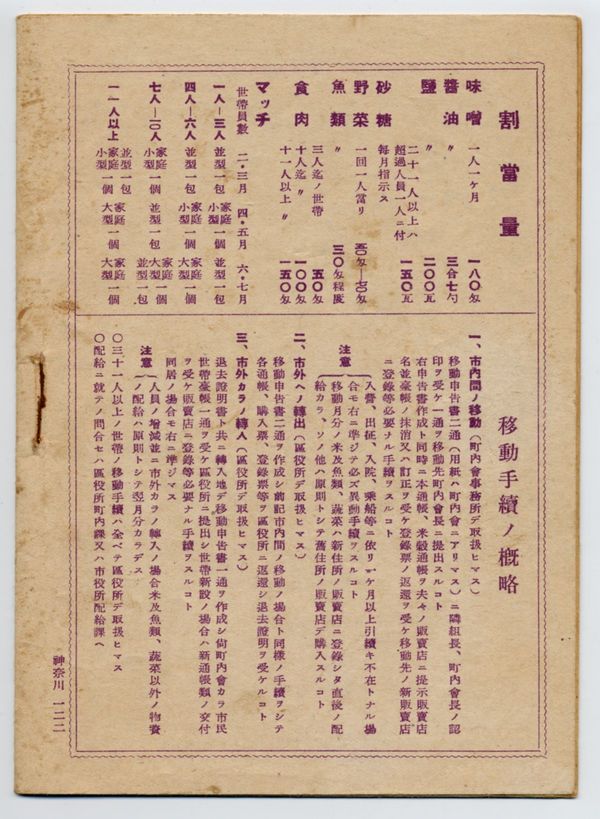 割當量
味噌 一人一ケ月 一八〇匁
醬油 〃 三合七勺
鹽 〃 二〇〇瓦
二十一人以上ハ
超過人員一人ニ付 一五〇瓦
砂糖 毎月指示ス
野菜 一回一人當リ 五〇匁―七〇匁
魚類 〃 三〇匁程度
食肉 三人迄ノ世帶 五〇匁
十人迄〃 一〇〇匁
十一人以上〃 一五〇匁
マッチ
世帶員數 二・三月 四・五月 六・七月
一人―三人 並型一包 小型一個 並型一包
四人―六人 並型一包 家庭小型一個 家庭小型一個
七人―一〇人 家庭小型一個 並型一包 家庭大型一個 並型一包
一一人以上 並型一包 家庭小型一個 家庭大型一個 家庭大型一個
移動手續ノ槪略
一、市内間ノ移動(町内會事務所デ取扱ヒマス)
移動申告書二通(用紙ハ町内會ニアリマス)ニ隣組長、町内會長ノ認
印ヲ受ケ一通ヲ移動先町内會長ニ提出スルコト
右申告書作成ト同時ニ本通帳、米穀通帳ヲ夫々ノ販賣店ニ提示販賣店
名並臺帳ノ抹消又ハ訂正ヲ受ケ登錄票ノ返還ヲ受ケ移動先ノ新販賣店
ニ登錄等必要ナル手續ヲスルコト
注意
入營、出征、入院、乘船等ニ依リ一ケ月以上引續キ不在トナル場
合モ右ニ準ジテ必ズ異動手續ヲスルコト
移動月分ノ米及魚類、蔬菜ハ新住所ノ販賣店ニ登錄シタ直後ノ配
給カラ、ソノ他ハ原則トシテ舊住所ノ販賣店デ購入スルコト
二、市外ヘノ轉出(區役所デ取扱ヒマス)
移動申告書二通ヲ作成シ前記市内間ノ移動ノ場合ト同樣ノ手續ヲシテ
各通帳、購入票、登錄票等ヲ區役所ニ返還シ退去證明ヲ受ケルコト
三、市外カラノ轉入(區役所デ取扱ヒマス)
退去證明書ト共ニ轉入地デ移動申告書一通ヲ作成シ尙町内會カラ市民
世帶臺帳一通ヲ受ケ區役所ニ提出シ世帶新設ノ場合ハ新通帳類ノ交付
ヲ受ケ販賣店ニ登錄等必要ナル手續ヲスルコト
同居ノ場合モ右ニ準ジマス
注意
人員ノ增減並ニ市外カラノ轉入ノ場合米及魚類、蔬菜以外ノ物資
ノ配給ハ原則トシテ翌月分カラデス
〇三十一人以上ノ世帶ノ移動手續ハ全ベテ區役所デ取扱ヒマス
〇配給ニ就テノ問合セハ區役所町内課又ハ市役所配給課ヘ
神奈川 一二二